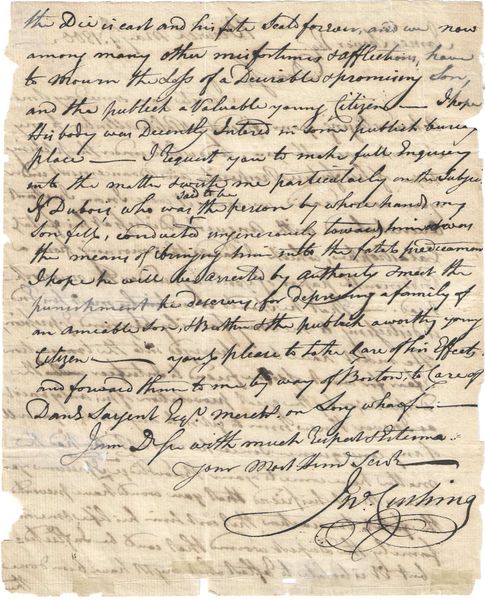 the Die is cast and his fate Seald forever, and we now
among many other misfortunes & afflictions, have
to mourn the Loss of a Desirable & promising Son,
and the publick a Valuable young Citizen — I hope
His body was Decently Intered in some publick burying
place — I Request you to make full Enquirey
into the matter & write me particularly on the Subject
If Dubois who was said to be the person by whose hands my
son fell, conducted ungenerously toward him & was
the means of bringing him into the fatal predicament
I hope he will be arrested by authority & meet the
punishment he deserves, for depriving a family of
an amicable Son, & Brother & the publick a worthy young
Citizen — please to take Care of his Effects
and forward them to me by way of Boston, to Care of
Danl Sargent Esqr. mercht. on Long wharf —
I am D Sir with much Respect & Esteem
Your Most Hum Servt
Jno. Cushing